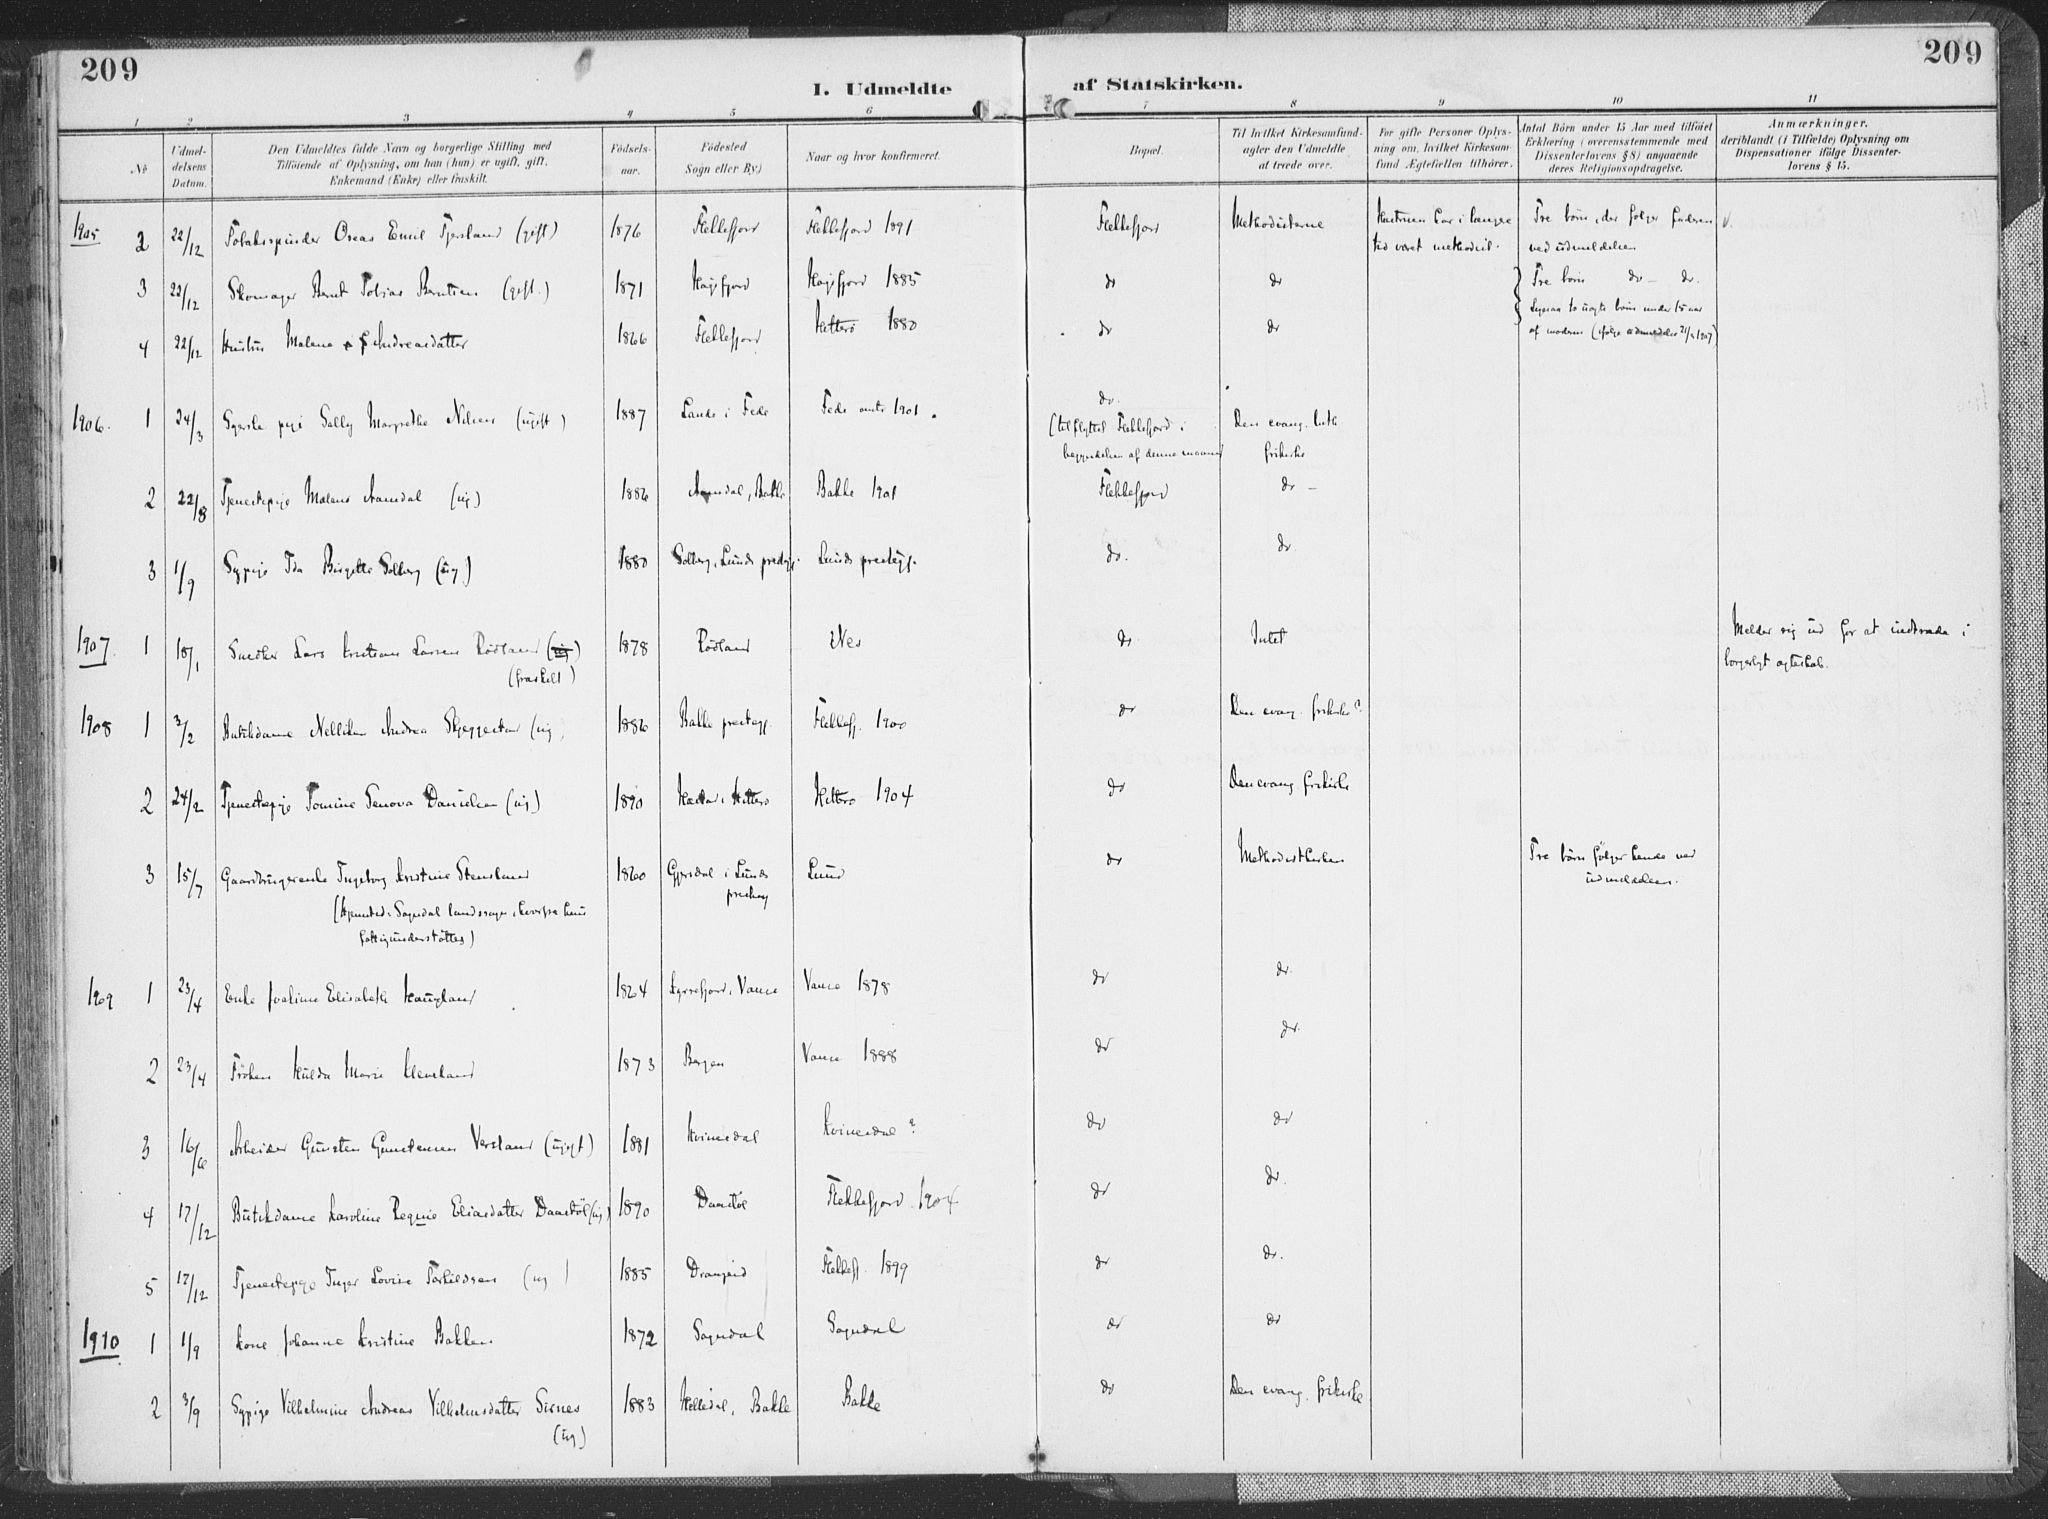 209
209
I. Udmeldte af Statskirken.
1 2 3 4 5 6 7 8 9 10 11
No
Udmeldelsens Datum.
Den Udmeldtes fulde Navn og borgerlige Stilling med
Tilföiende af Oplysning, om han (hun) er ugift, gift,
Enkemand (Enke) eller fraskilt.
Födselsaar.
Födested
Sogn eller By)
Naar og hvor konfirmeret.
Bopæl.
Til hvilket Kirkesamfund
agter den Udmeldte
at træde over.
For gifte Personer Oplysning om, hvilket Kirkesamfund Ægtefællen tilhörer.
Antal Börn under 15 Aar med tilföiet
Erklæring (overensstemmende med
Dissenterlovens § 8) angaaende
deres Religionsopdragelse.
Anmærkninger.
deriblandt (i Tilfælde) Oplysning om
Dispensationer ifölge Dissenterlovens § 15.
1905 2 22/12 Tobaksspinder Oreas Emil Fjersland (gift) 1876 Flekkefjord Flekkefjord 1891 Flekkefjord Methodisterne Hustruen har i længre Tre börn, der følger faderen
tid været methodist. ved udmeldelsen
3 22/12 Skomager Bernt Tobias Berntsen (gift.) 1871 Høgsfjord Høgsfjord 1885 do do Tre börn do – do.
Ligesaa to uægte börn under 15 aar
4 22/12 Hustru Malene Andreasdatter 1866 Flekkefjord Hitterö 1880 do do af moderen (ifølge udmeldelse 1907)
1906. 1 24/3 Syerske pige Selly Margrethe Nilsen (ugift) 1887 Lande i Fede Fede 1901. do.
(tilflyttet Flekkefjord i Den evang. luth
begyndelsen af denne maaned frikirke
2 22/8 Tjenestepige Malene Aamdal (ug) 1886 Aamdal, Bakke Bakke 1901 Flekkefjord do –
3 1/9 Sypige Ida Birgitte Solberg (ug.) 1880 Solberg, Lunds prestegj. Lunds prestegj. do. do.
1907. 1 18/1 Snedker Lars Kristian Larsen Rödland (ug) 1878 Rödland Nes do. Intet Melder sig ud for at indtræde i
(fraskilt) borgerligt ægteskab.
1908 1 3/2 Butikdame Nellikke Andrea Skjeggestad (ug) 1886 Bakke prestegj. Flekkefj. 1900 do Den evang. frikirke?
2 24/2 Tjenestepige Tomine Tenova Danielsen (ug) 1890 i Hitterö Hitterö 1904 do Den evang. frikirke
3 15/7 Gaardbrugerenke Ingeborg Kristine Stensland 1860 Gjersdal i Lunds Lund do Methodistkirken Tre börn følger hende ved
prestegj udmeldelsen.
(hjemsted: Sogndal landssogn, hvorfra hun
fattigunderstöttes)
1909 1 23/4 Enke Joakime Elisabeth Haugland 1864 Kjørrefjord, Vanse Vanse 1878 do do.
2 23/4 Fröken Hulda Marie Kleveland 1873 Bergen Vanse 1888 do do.
3 16/6 Arbeider Gunsten Gunstensen Versland (ugift) 1881 Kvinesdal Kvinesdal? do do
4 17/12 Butikdame Karoline Regine Eliasdatter Daastöl (ug) 1890 Daastöl Flekkefjord 1904 do do.
5 17/12 Tjenestepige Inger Lovise Torkildsen (ug) 1885 Drangeid Flekkefj. 1899 do do.
1910 1 1/9 Kone Johanne Kristine Bakken 1872 Sogndal Sogndal do do
2 3/9 Sypige Vilhelmine Andrea Vilhelmsdatter Sirnes 1883 Helledal, Bakke Bakke do Den evang. frikirke
(ug)